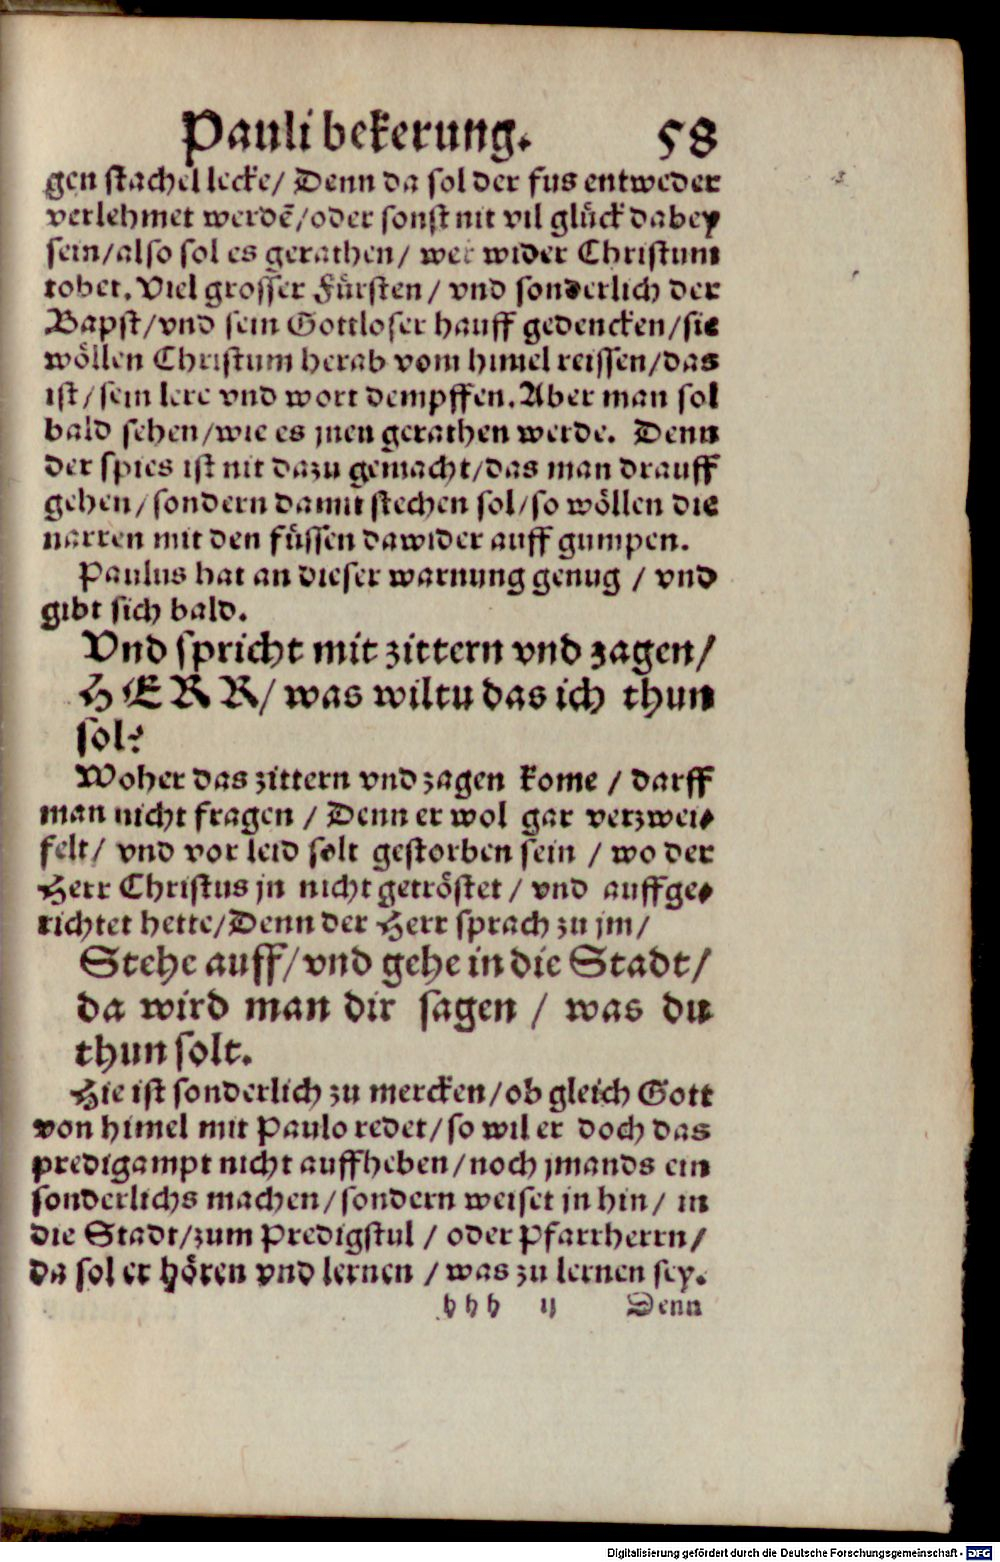 Pauli bekerung. 58
gen stachel lecke/ Denn da sol der fus entweder
verlehmet werdē/oder sonst nit vil glück dabey
sein/also sol es gerathen/ wer wider Christum
tobet. Viel grosser Fürsten/ vnd sonderlich der
Bapst/vnd sein Gottloser hauff gedencken/sie
wöllen Christum herab vom himel reissen/das
ist/sein lere vnd wort dempffen. Aber man sol
bald sehen/wie es jnen gerathen werde. Denn
der spies ist nit dazu gemacht/das man drauff
gehen/sondern damit stechen sol/so wöllen die
narren mit den füssen dawider auff gumpen.
Paulus hat an dieser warnung genug / vnd
gibt sich bald.
Vnd spricht mit zittern vnd zagen/
HERR/ was wiltu das ich thun
sol?
Woher das zittern vnd zagen kome / darff
man nicht fragen / Denn er wol gar verzwei-
felt/ vnd vor leid solt gestorben sein / wo der
Herr Christus jn nicht getröstet / vnd auffge-
richtet hette/Denn der Herr sprach zu jm/
Stehe auff/vnd gehe in die Stadt/
da wird man dir sagen / was du
thun solt.
Hie ist sonderlich zu mercken/ob gleich Gott
von himel mit Paulo redet/so wil er doch das
predigampt nicht auffheben/noch jmands ein
sonderlichs machen/sondern weiset jn hin/ in
die Stadt/zum Predigstul / oder Pfarrherrn/
da sol er hören vnd lernen / was zu lernen sey.
hhh ij Denn
Digitalisierung gefördert durch die Deutsche Forschungsgemeinschaft - DFG